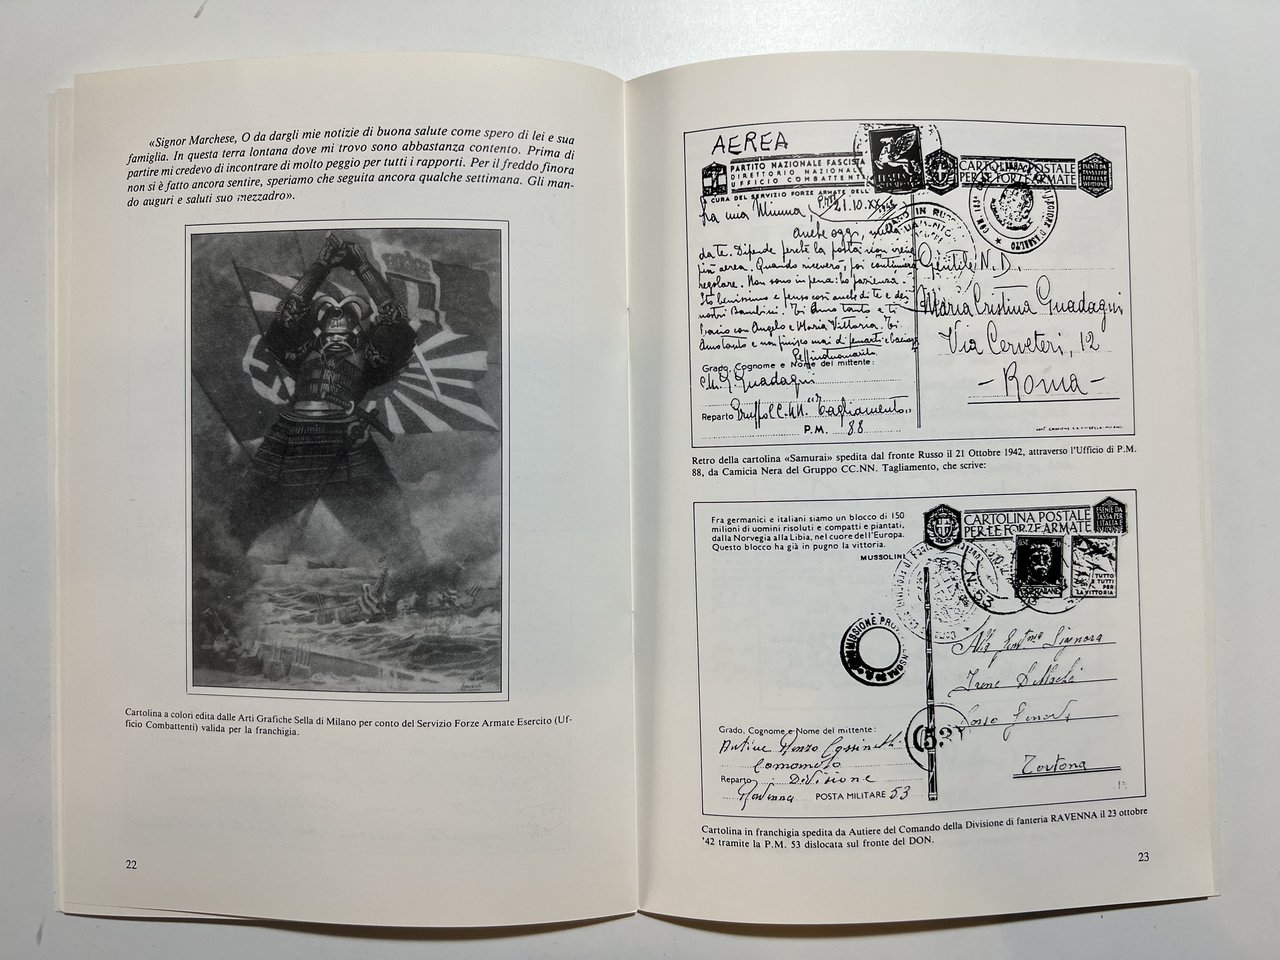 «Signor Marchese, O da dargli mie notizie di buona salute come spero di lei e sua
famiglia. In questa terra lontana dove mi trovo sono abbastanza contento. Prima di
partire mi credevo di incontrare di molto peggio per tutti i rapporti. Per il freddo finora
non si è fatto ancora sentire, speriamo che seguita ancora qualche settimana. Gli man-
do auguri e saluti suo mezzadro».
Cartolina a colori edita dalle Arti Grafiche Sella di Milano per conto del Servizio Forze Armate Esercito (Uf-
ficio Combattenti) valida per la franchigia.
22
AEREA
PARTITO NAZIONALE FASCISTA
DIRETTORIO NAZIONALE
UFFICIO COMBATTENTI
A CURA DEL SERVIZIO FORZE ARMATE DELL
CARTOLINA POSTALE
PER LE FORZE ARMATE
ESENTE DA
TASSA PER
21.10.XX
Anche oggi, nulla
da te. Dipende perché la posta non
più aerea. Quando riceverò, poi continuerà
regolare. Non sono in pena: ho pazienza.
Sto benissimo e penso così anche di te e dei
nostri Bambini. Ti Amo tanto e ti
bacio con Angelo e Maria Vittoria. Ti
Amo tanto e non finisco mai di
Grado, Cognome e Nome del mittente:
Guadagni
Reparto Gruppo CC.NN. "Tagliamento"
P.M. 88
Gentile N.D.
Maria Cristina Guadagni
Via Cerveteri, 12
- Roma -
Retro della cartolina «Samurai» spedita dal fronte Russo il 21 Ottobre 1942, attraverso l'Ufficio di P.M.
88, da Camicia Nera del Gruppo CC.NN. Tagliamento, che scrive:
Fra germanici e italiani siamo un blocco di 150
milioni di uomini risoluti e compatti e piantati,
dalla Norvegia alla Libia, nel cuore dell'Europa.
Questo blocco ha già in pugno la vittoria.
MUSSOLINI
CARTOLINA POSTALE
PER LE FORZE ARMATE
ESENTE DA
TASSA PER
CENT 50
TUTTO
E TUTTI
PER
LA VITTORIA
N. 53
53
Alla Signora
Irene
Corso
Tortona
Grado, Cognome e Nome del mittente:
Autiere Renzo
Comando
Reparto Divisione
Ravenna POSTA MILITARE 53
Cartolina in franchigia spedita da Autiere del Comando della Divisione di fanteria RAVENNA il 23 ottobre
'42 tramite la P.M. 53 dislocata sul fronte del DON.
23